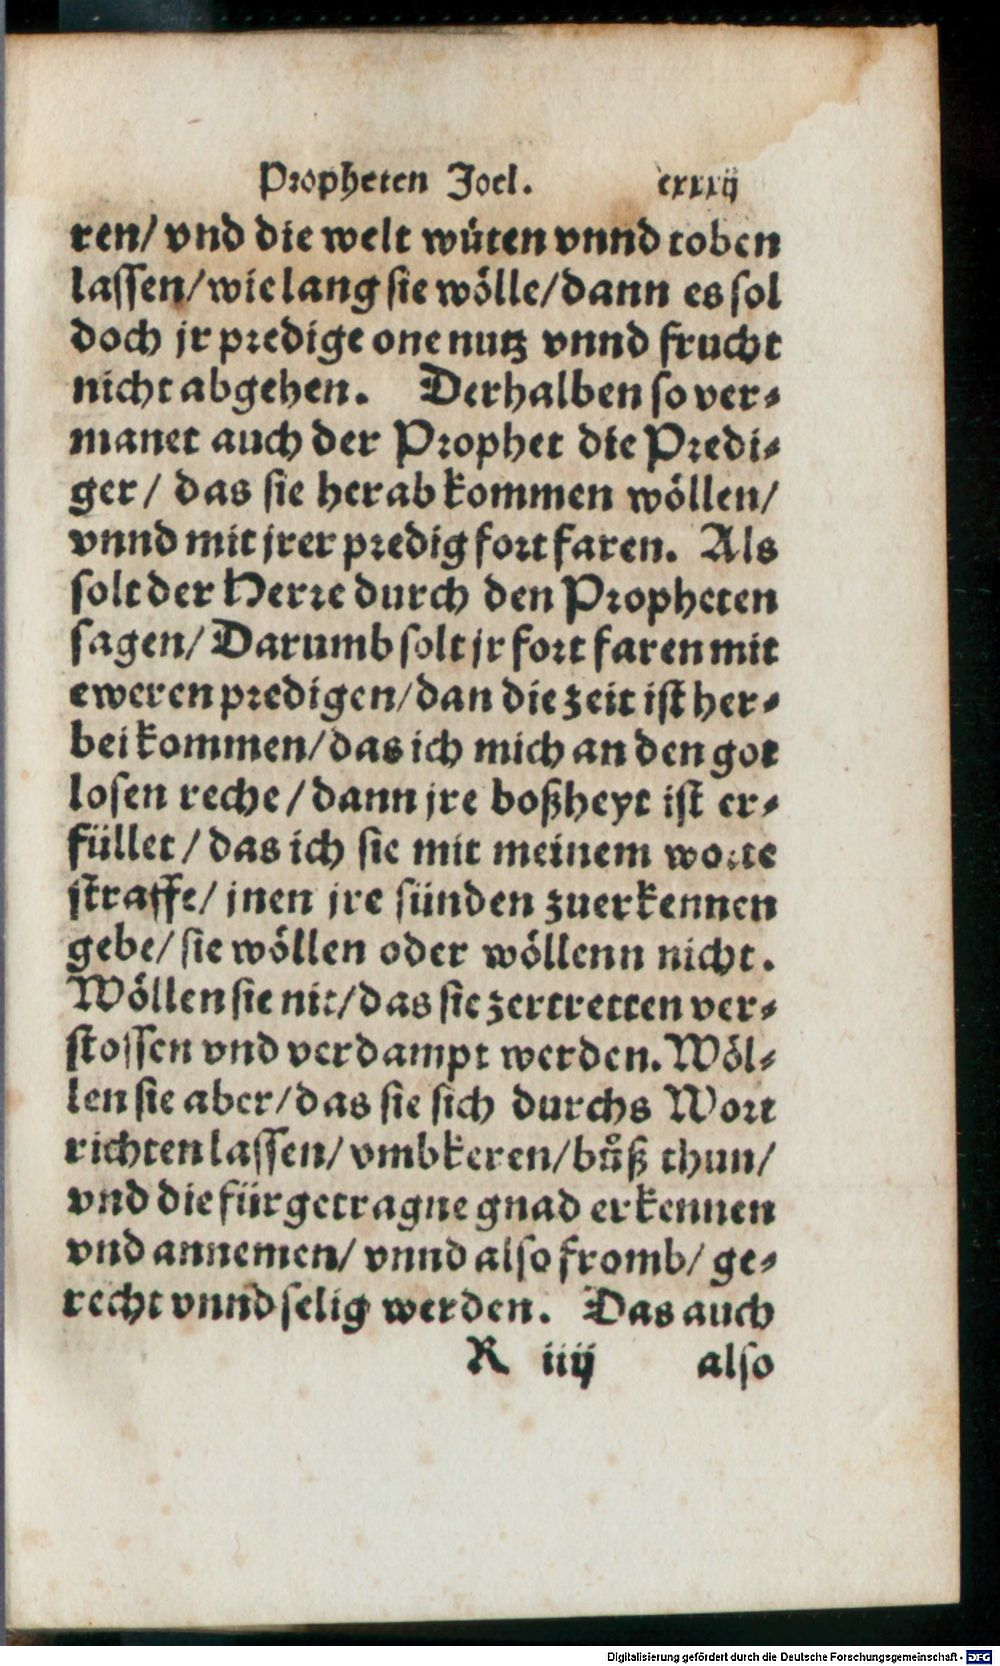 Propheten Joel. cxxxij
ren/ vnd die welt wüten vnnd toben
lassen/ wie lang sie wölle/ dann es sol
doch jr predige one nutz vnnd frucht
nicht abgehen. Derhalben so ver⸗
manet auch der Prophet die Predi⸗
ger/ das sie herab kommen wöllen/
vnnd mit jrer predig fort faren. Als
solt der Herre durch den Propheten
sagen/ Darumb solt jr fort faren mit
eweren predigen/ dan die zeit ist her⸗
bei kommen/ das ich mich an den got
losen reche/ dann jre boßheyt ist er⸗
füllet/ das ich sie mit meinem worte
straffe/ jnen jre sünden zuerkennen
gebe/ sie wöllen oder wöllenn nicht.
Wöllen sie nit/ das sie zertretten ver⸗
stossen vnd verdampt werden. Wöl⸗
len sie aber/ das sie sich durchs Wort
richten lassen/ vmbkeren/ bůß thun/
vnd die fürgetragne gnad erkennen
vnd annemen/ vnnd also fromb/ ge⸗
recht vnnd selig werden. Das auch
R iiij also
Digitalisierung gefördert durch die Deutsche Forschungsgemeinschaft - DFG